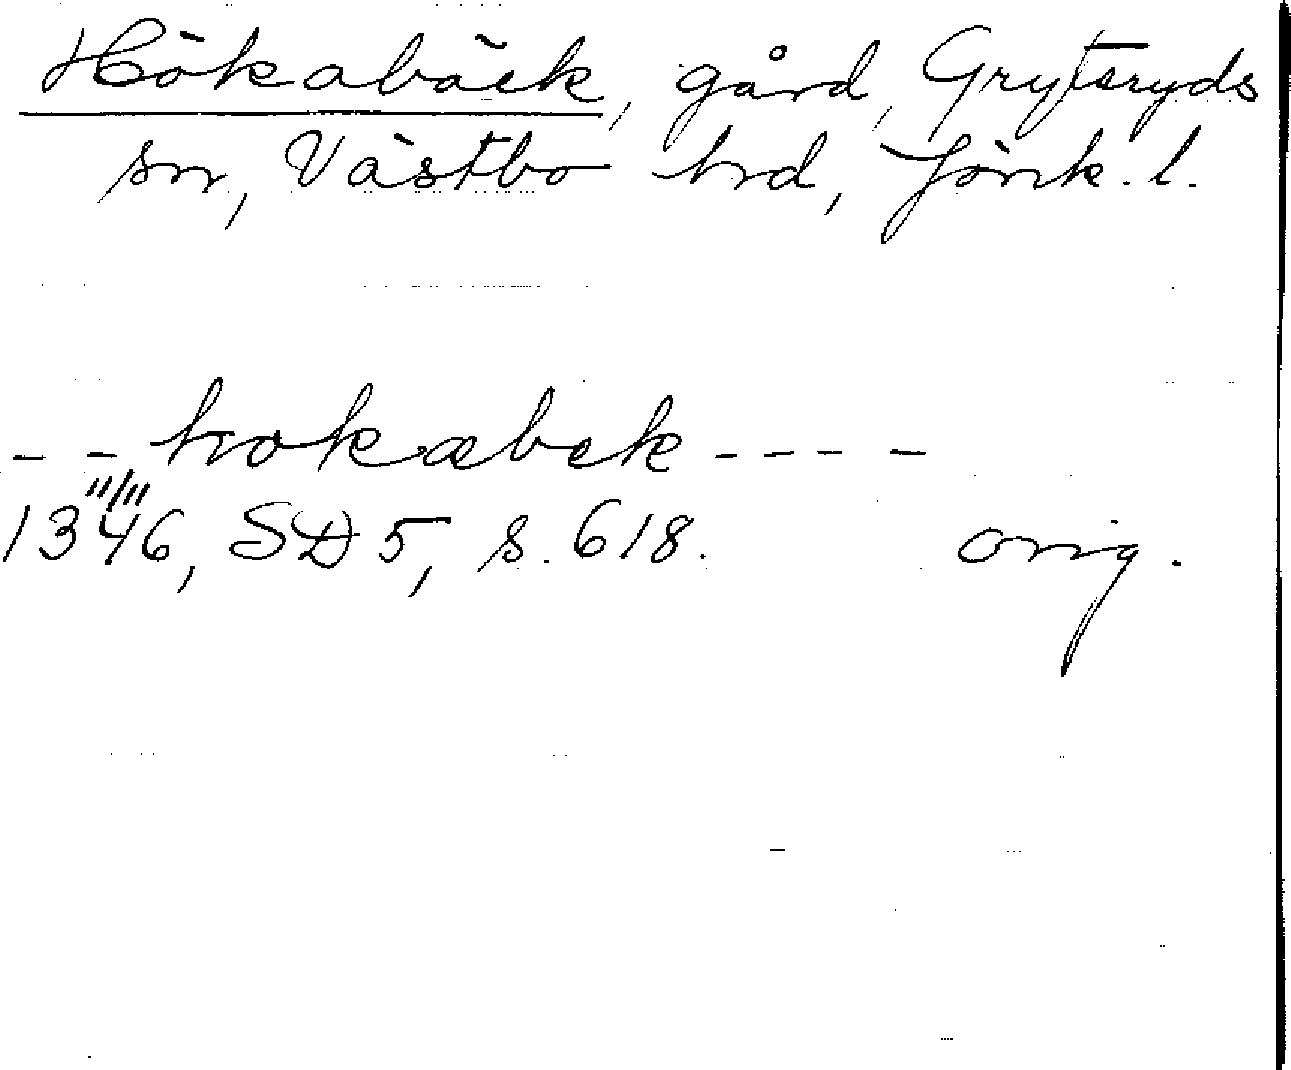 Hökabäck, gård, Grytsryds
sn, Västbo hrd, Jönk. l.
- - hokæbek - - - -
11/11
1346, SD 5, s. 618. orig.